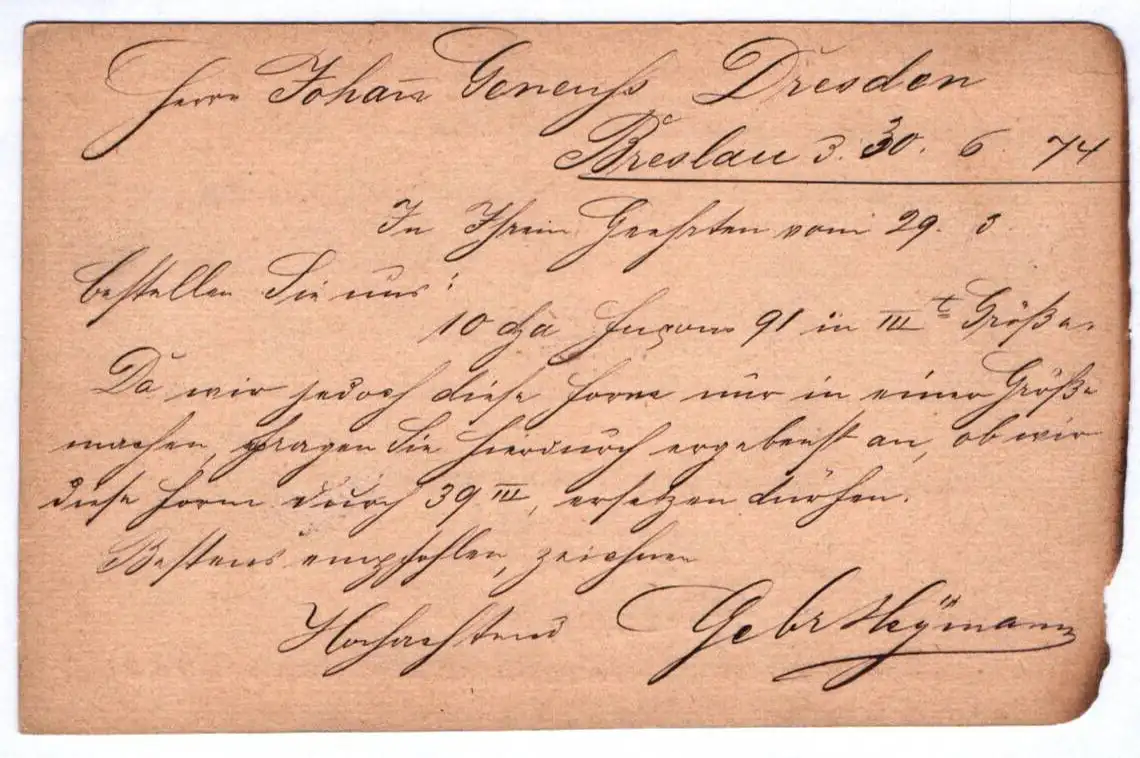 Herrn Johann Geneuss Dresden
Breslau d. 30. 6. 74
In Ihrem Geehrten vom 29. d.
bestellen Sie uns:
10 Façons 91 in III t Größe.
Da wir jedoch diese Form nur in einer Größe
machen, fragen Sie hierdurch ergebenst an, ob wir
diese Form durch 39 III, ersetzen dürfen.
Bestens empfohlen, zeichnen
Hochachtend Gebr Heÿmann